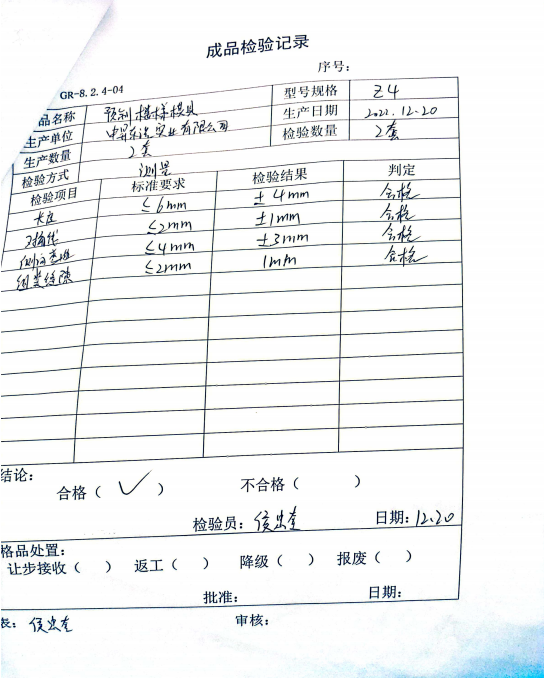 成品检验记录
序号：
GR-8.2.4-04
品名称 预制模样模具 型号规格 Z4
生产单位 实业有限公司 生产日期 2022.12.20
生产数量 2套 检验数量 2套
检验方式 测量
检验项目 标准要求 检验结果 判定
长度 ≤6mm ±4mm 合格
对角线 ≤2mm ±1mm 合格
侧向 ≤4mm ±3mm 合格
组装缝隙 ≤2mm 1mm 合格
结论：
合格（ ✓ ） 不合格（ ）
检验员： 日期：12.20
格品处置：
让步接收（ ） 返工（ ） 降级（ ） 报废（ ）
批准： 日期：
表： 审核：